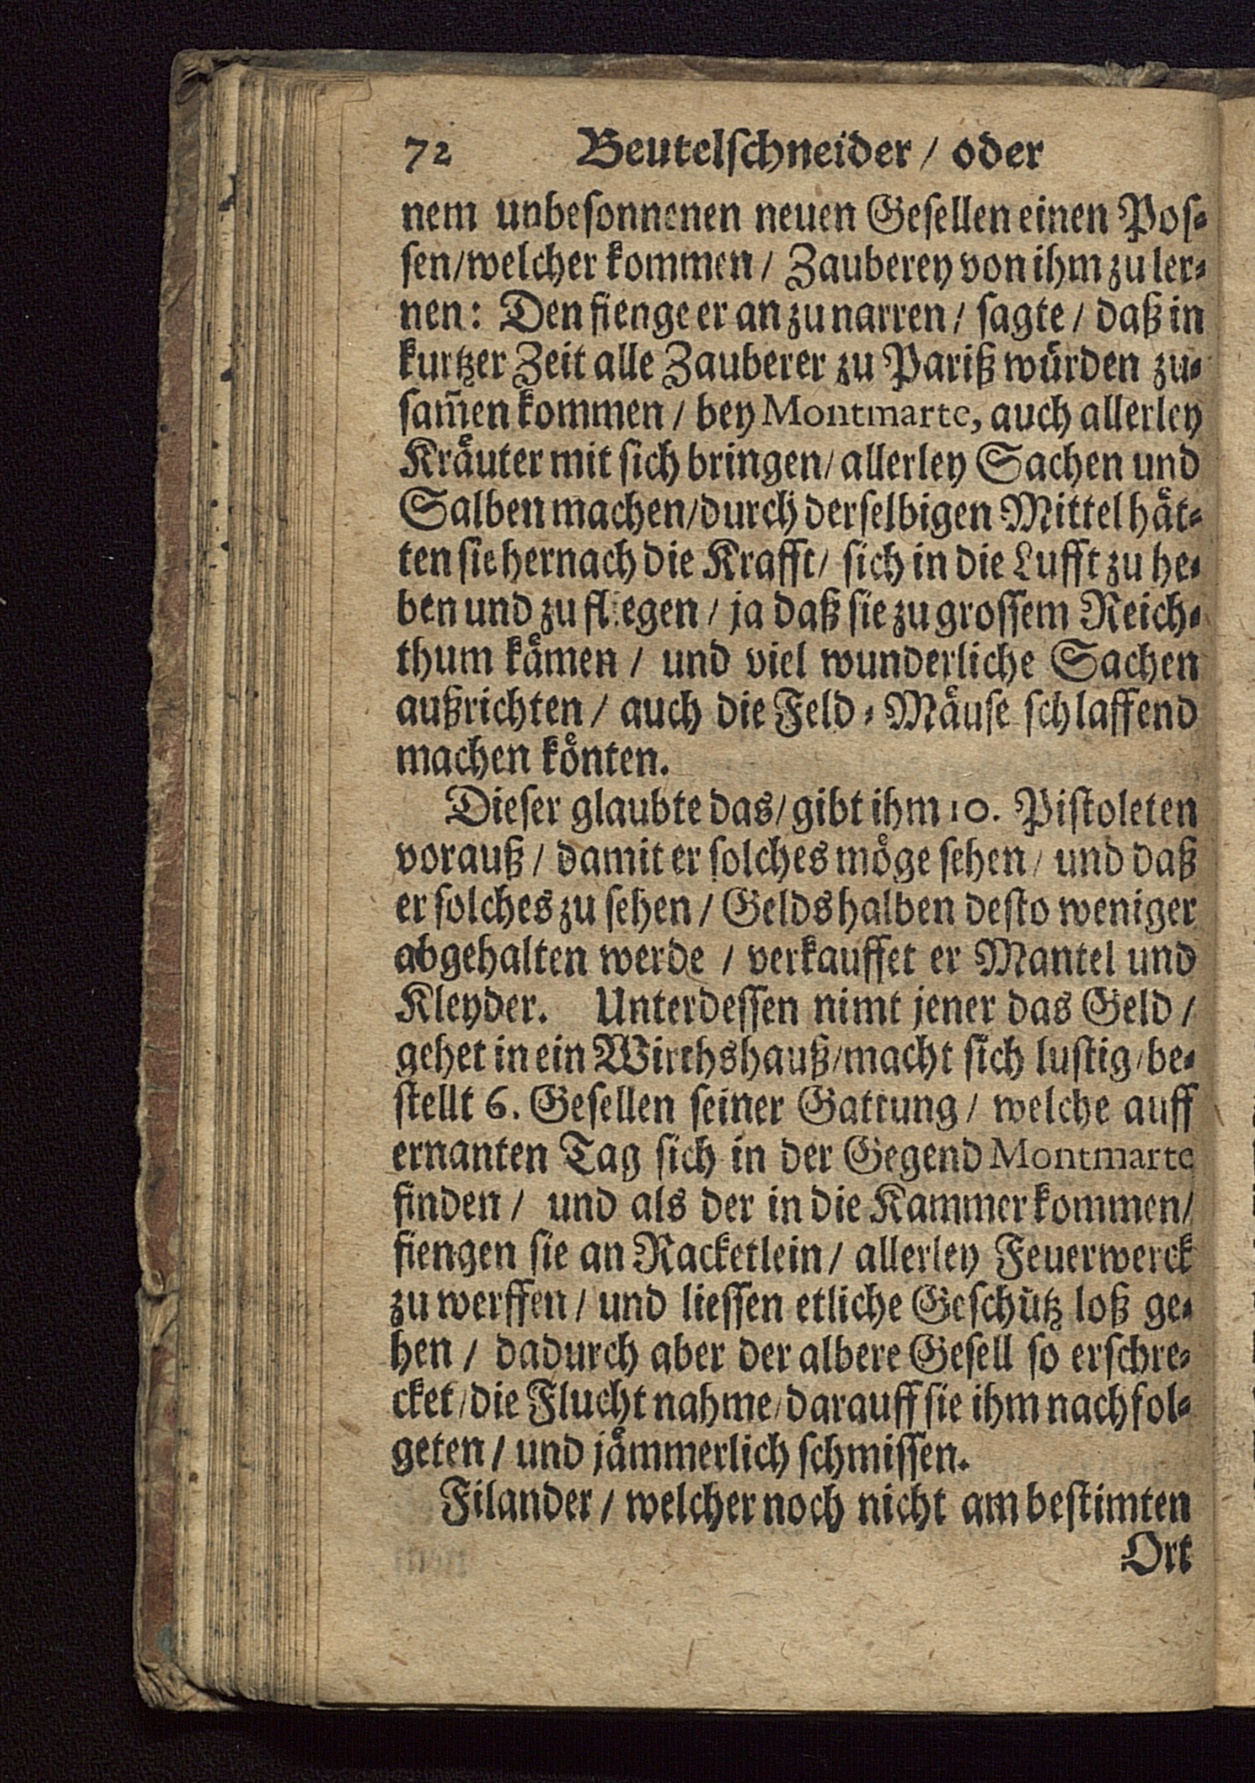 72 Beutelschneider / oder
nem unbesonnenen neuen Gesellen einen Pos-
sen/welcher kommen / Zauberey von ihm zu ler-
nen: Den fienge er an zu narren / sagte / daß in
kurtzer Zeit alle Zauberer zu Pariß würden zu-
sam̅en kommen / bey Montmarte, auch allerley
Kräuter mit sich bringen/ allerley Sachen und
Salben machen/durch derselbigen Mittel hät-
ten sie hernach die Krafft/ sich in die Lufft zu he-
ben und zu fliegen / ja daß sie zu grossem Reich-
thum kämen / und viel wunderliche Sachen
außrichten / auch die Feld-Mäuse schlaffend
machen könten.
Dieser glaubte das/ gibt ihm 10. Pistoleten
vorauß / damit er solches möge sehen / und daß
er solches zu sehen / Gelds halben desto weniger
abgehalten werde / verkauffet er Mantel und
Kleyder. Unterdessen nimt jener das Geld /
gehet in ein Wirthshauß/macht sich lustig/be-
stellt 6. Gesellen seiner Gattung / welche auff
ernanten Tag sich in der Gegend Montmarte
finden / und als der in die Kammer kommen/
fiengen sie an Racketlein / allerley Feuerwerck
zu werffen / und liessen etliche Geschütz loß ge-
hen / dadurch aber der albere Gesell so erschre-
cket/die Flucht nahme/darauff sie ihm nachfol-
geten / und jämmerlich schmissen.
Filander / welcher noch nicht am bestimten
Ort